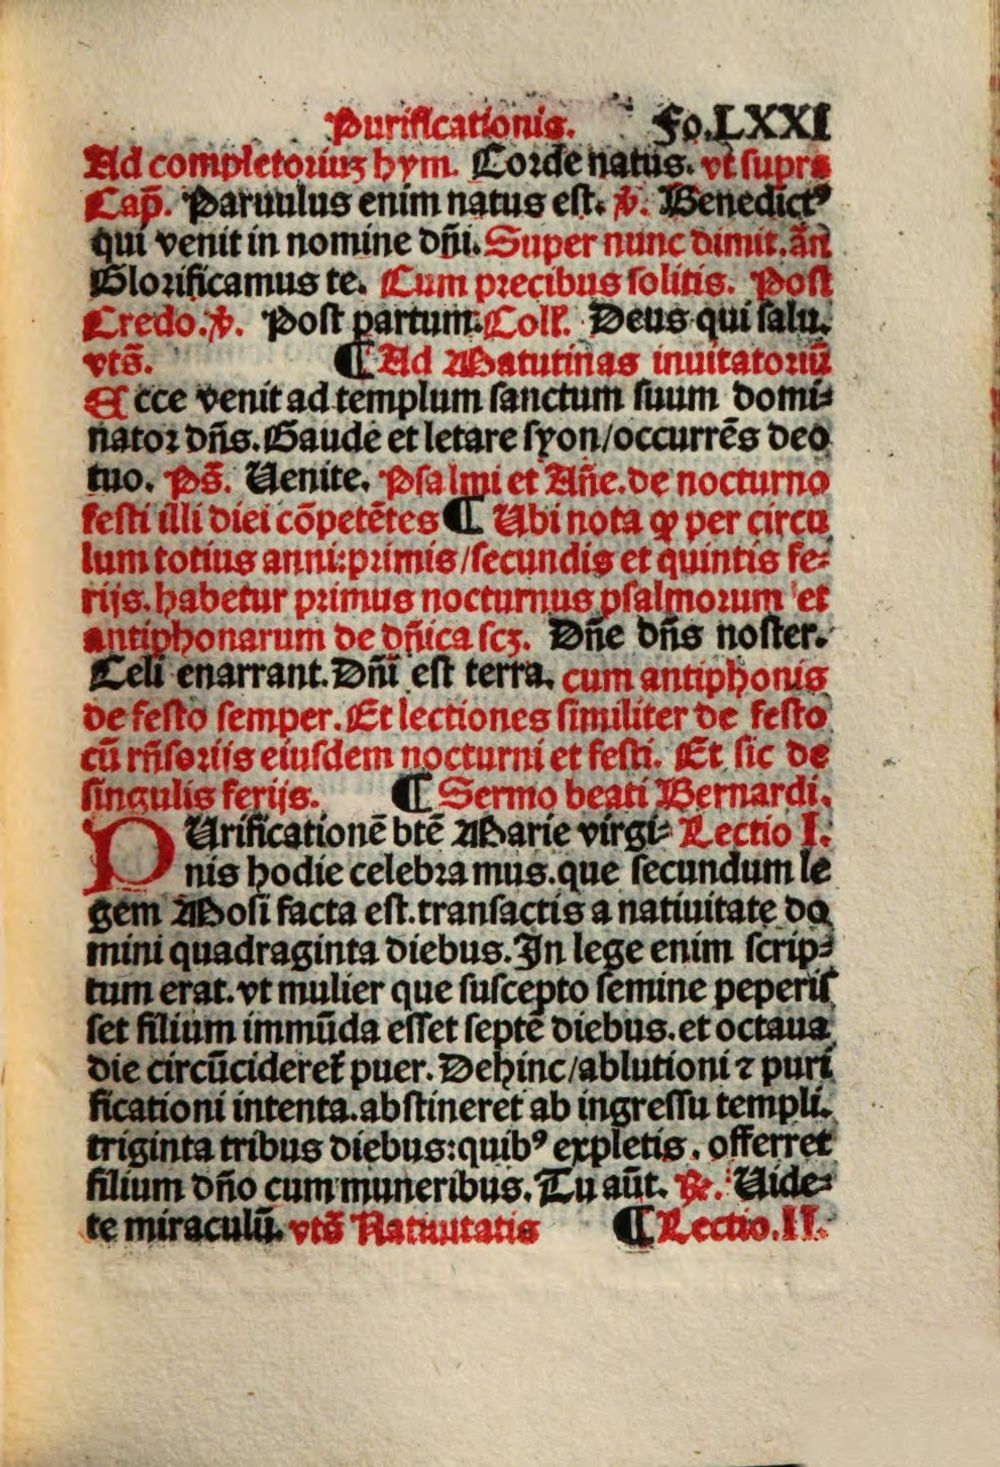 Purificationis. Fo.LXXI
Ad completoriuꝫ hym. Corde natus. vt supra
Cap̄. Paruulus enim natus est. ℣. Benedictꝰ
qui venit in nomine dn̄i. Super nunc dimit. an̄
Glorificamus te. Cum precibus solitis. Post
Credo. ℣. Post partum. Coll'. Deus qui salu.
vts̄. ¶ Ad Matutinas inuitatoriū
Ecce venit ad templum sanctum suum domi⸗
nator dn̄s. Gaude et letare syon/occurrēs deo
tuo. Ps̄. Uenite. Psalmi et An̄e. de nocturno
festi illi diei cōpetētes ¶ Ubi nota ꝙ per circu
lum totius anni:primis/secundis et quintis fe⸗
rijs. habetur primus nocturnus psalmorum et
antiphonarum de dn̄ica scꝫ. Dn̄e dn̄s noster.
Celi enarrant. Dn̄i est terra. cum antiphonis
de festo semper. Et lectiones similiter de festo
cū rn̄soriis eiusdem nocturni et festi. Et sic de
singulis ferijs. ¶ Sermo beati Bernardi.
PUrificationē btē Marie virgi⸗ Lectio I.
nis hodie celebramus. que secundum le
gem Mosi facta est. transactis a natiuitate do
mini quadraginta diebus. In lege enim scrip⸗
tum erat. vt mulier que suscepto semine peperis
set filium immūda esset septē diebus. et octaua
die circūcideret᷑ puer. Dehinc/ablutioni ⁊ puri
ficationi intenta. abstineret ab ingressu templi.
triginta tribus diebus:quibꝰ expletis, offerret
filium dn̄o cum muneribus. Tu aūt. ℟. Uide⸗
te miraculū. vts̄ Natiuitatis ¶ Lectio. II.